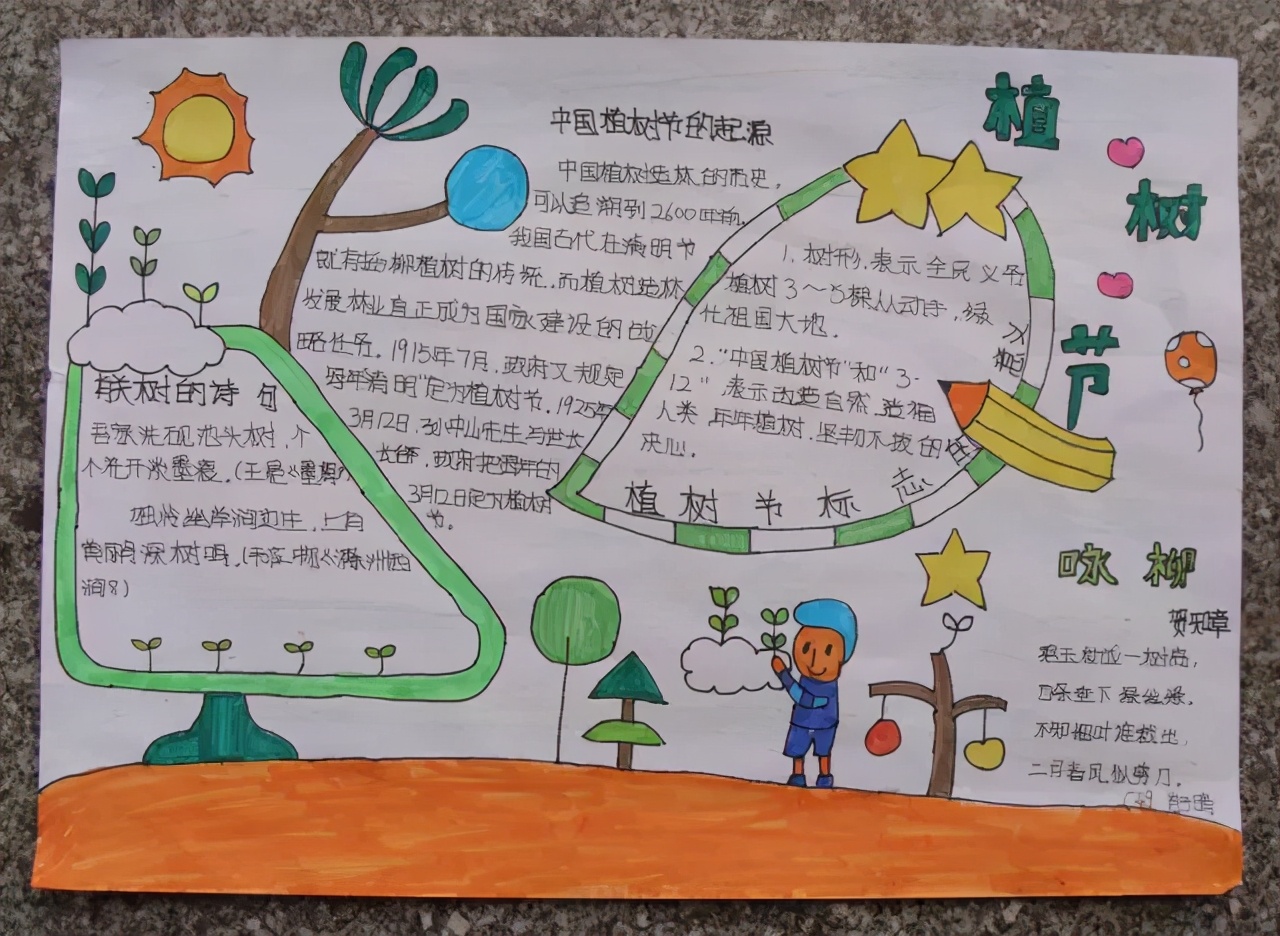 植
树
节
中国植树节的起源
中国植树造林的历史，
可以追溯到2600年前。
我国古代在清明节
就有插柳植树的传统，而植树造林
发展林业真正成为国家建设的战
略任务。1915年7月，政府又规定
每年清明"定为植树节，1925年
3月12日，孙中山先生与世长
，政府把每年的
3月12日定为植树
节。
1、树形，表示全民义务
植树3～5棵人人动手，绿
化祖国大地。
2、"中国植树节"和"3·
12"表示改造自然，造福
人类，年年植树，坚韧不拔的
决心。
植树节标志
树的诗句
吾家洗砚池头树，个
个花开淡墨痕。(王冕《墨梅》
独怜幽草涧边生，上有
黄鹂深树鸣。(韦应物《滁州西
涧》)
咏柳
贺知章
碧玉妆成一树高，
万条垂下绿丝绦。
不知细叶谁裁出，
二月春风似剪刀。